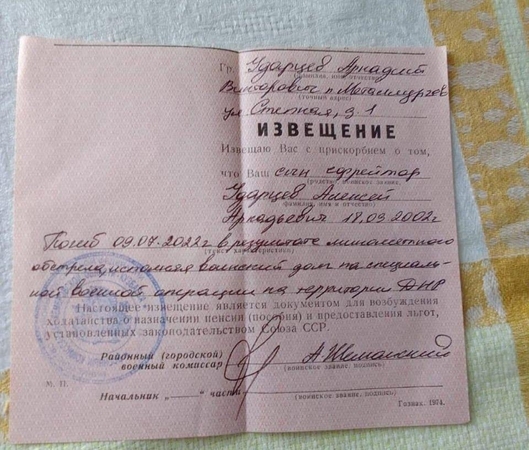 Гр. Ударцев Аркадий
(фамилия, имя, отчество)
Викторович п. Металлургов
(точный адрес)
ул. Степная, д. 1
ИЗВЕЩЕНИЕ
Извещаю Вас с прискорбием о том,
что Ваш сын ефрейтор
(родство, воинское звание,
Ударцев Алексей
фамилия, имя и отчество)
Аркадьевич 18.03 2002г
Погиб 09.07.2022г в результате минометного
обстрела, исполняя воинский долг на специаль-
ной военной операции на территории ДНР
Настоящее извещение является документом для возбуждения
ходатайства о назначении пенсии (пособия) и предоставления льгот,
установленных законодательством Союза ССР.
Районный (городской)
военный комиссар
(воинское звание, подпись)
М. П.
Начальник „ “ части
(воинское звание, подпись)
Гознак. 1974.